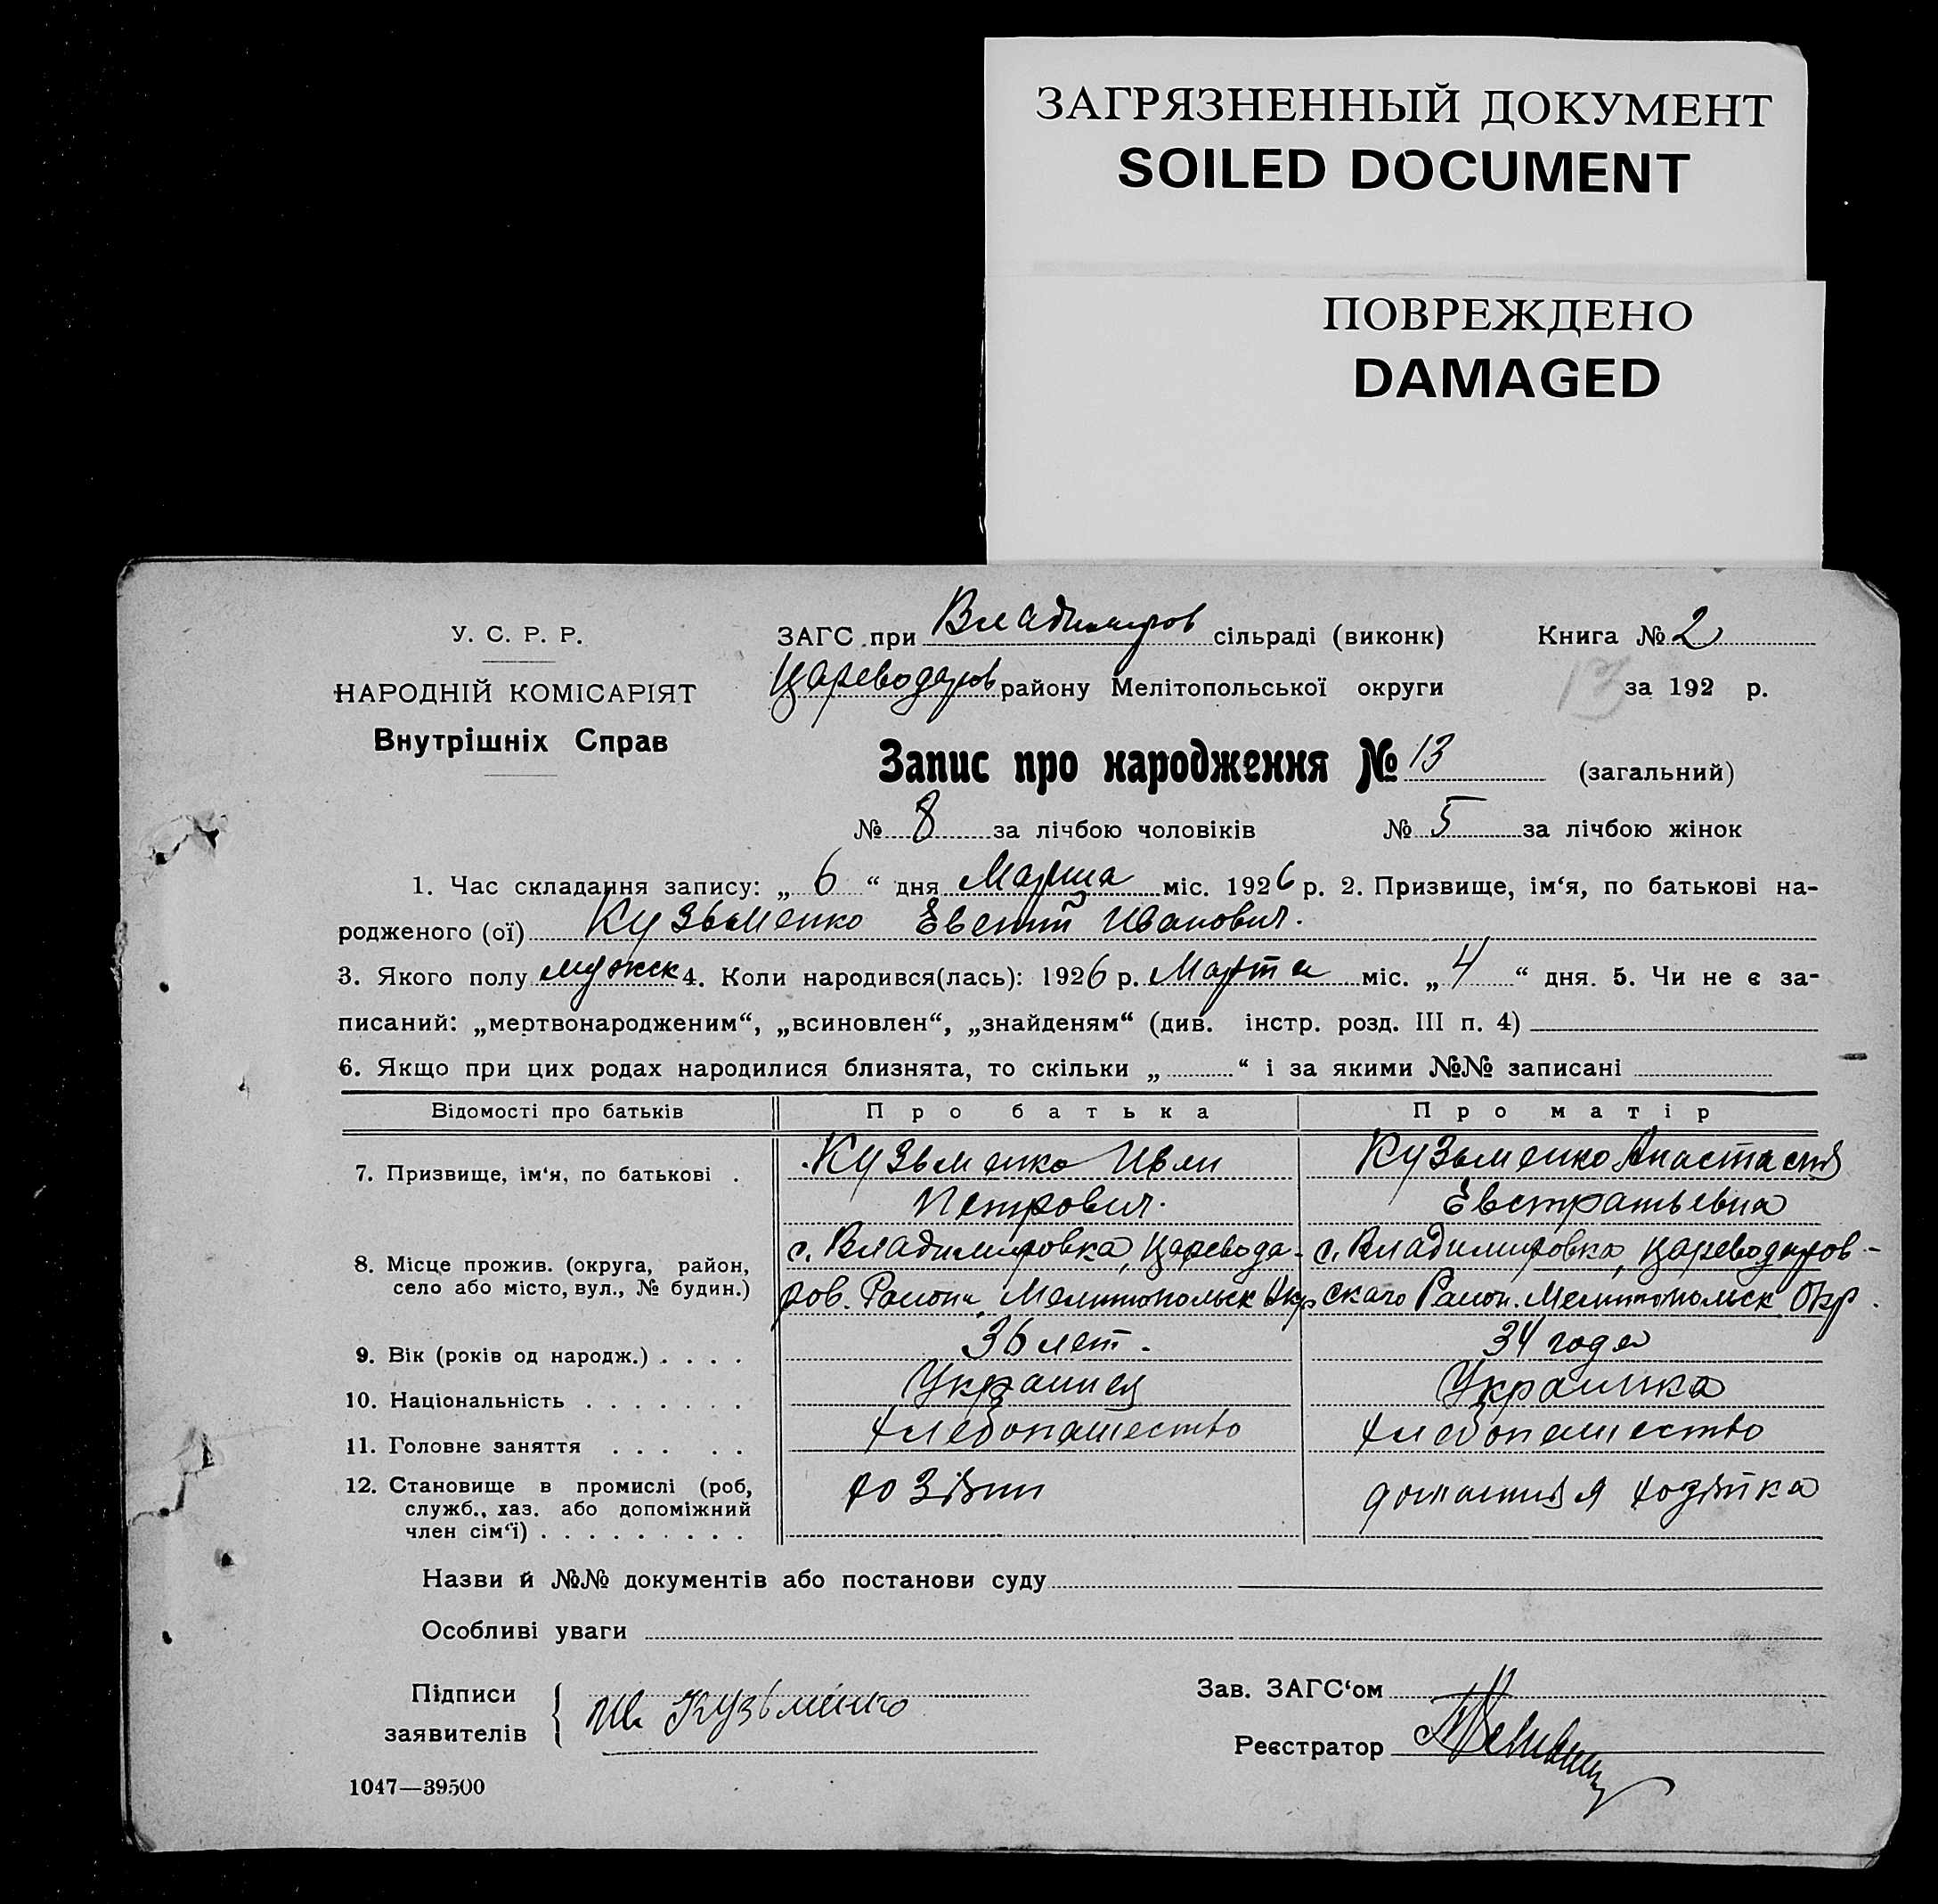 ЗАГРЯЗНЕННЫЙ ДОКУМЕНТ
SOILED DOCUMENT
ПОВРЕЖДЕНО
DAMAGED
У. С. Р. Р.
НАРОДНІЙ КОМІСАРІЯТ
Внутрішніх Справ
ЗАГС при Владимиров сільраді (виконк) Книга № 2
Цареводаров району Мелітопольської округи 13 за 192 р.
Запис про народження № 13 (загальний)
№ 8 за лічбою чоловіків № 5 за лічбою жінок
1. Час складання запису: „ 6 “ дня Марта міс. 1926 р. 2. Призвище, ім‘я, по батькові на-
родженого (ої) Кузьменко Иванович.
3. Якого полу мужск 4. Коли народився(лась): 1926 р. Марта міс. „ 4 “ дня. 5. Чи не є за-
писаний: „мертвонародженим“, „всиновлен“, „знайденям“ (див. інстр. розд. III п. 4)
6. Якщо при цих родах народилися близнята, то скільки „ “ і за якими №№ записані
Відомості про батьків Про батька Про матір
7. Призвище, ім‘я, по батькові . Кузьменко Иван Кузьменко Анастасия
Петрович. Евстратьевна
8. Місце прожив. (округа, район, с. Владимировка, Царевода- с. Владимировка, Цареводаров-
село або місто, вул., № будин.) ров. Района, Мелитопольск Окр скаго Район. Мелитопольск Окр.
9. Вік (років од народж.) . . . . 36 лет. 34 года
10. Національність . . . . . . . Украинец Украинка
11. Головне заняття . . . . . хлебопашество хлебопашество
12. Становище в промислі (роб, хозяин домашняя
служб., хаз. або допоміжний
член сім‘ї) . . . . . . . . .
Назви й №№ документів або постанови суду
Особливі уваги
Підписи заявителів { Ив Кузьменко
Зав. ЗАГС‘ом
Реєстратор
1047—39500